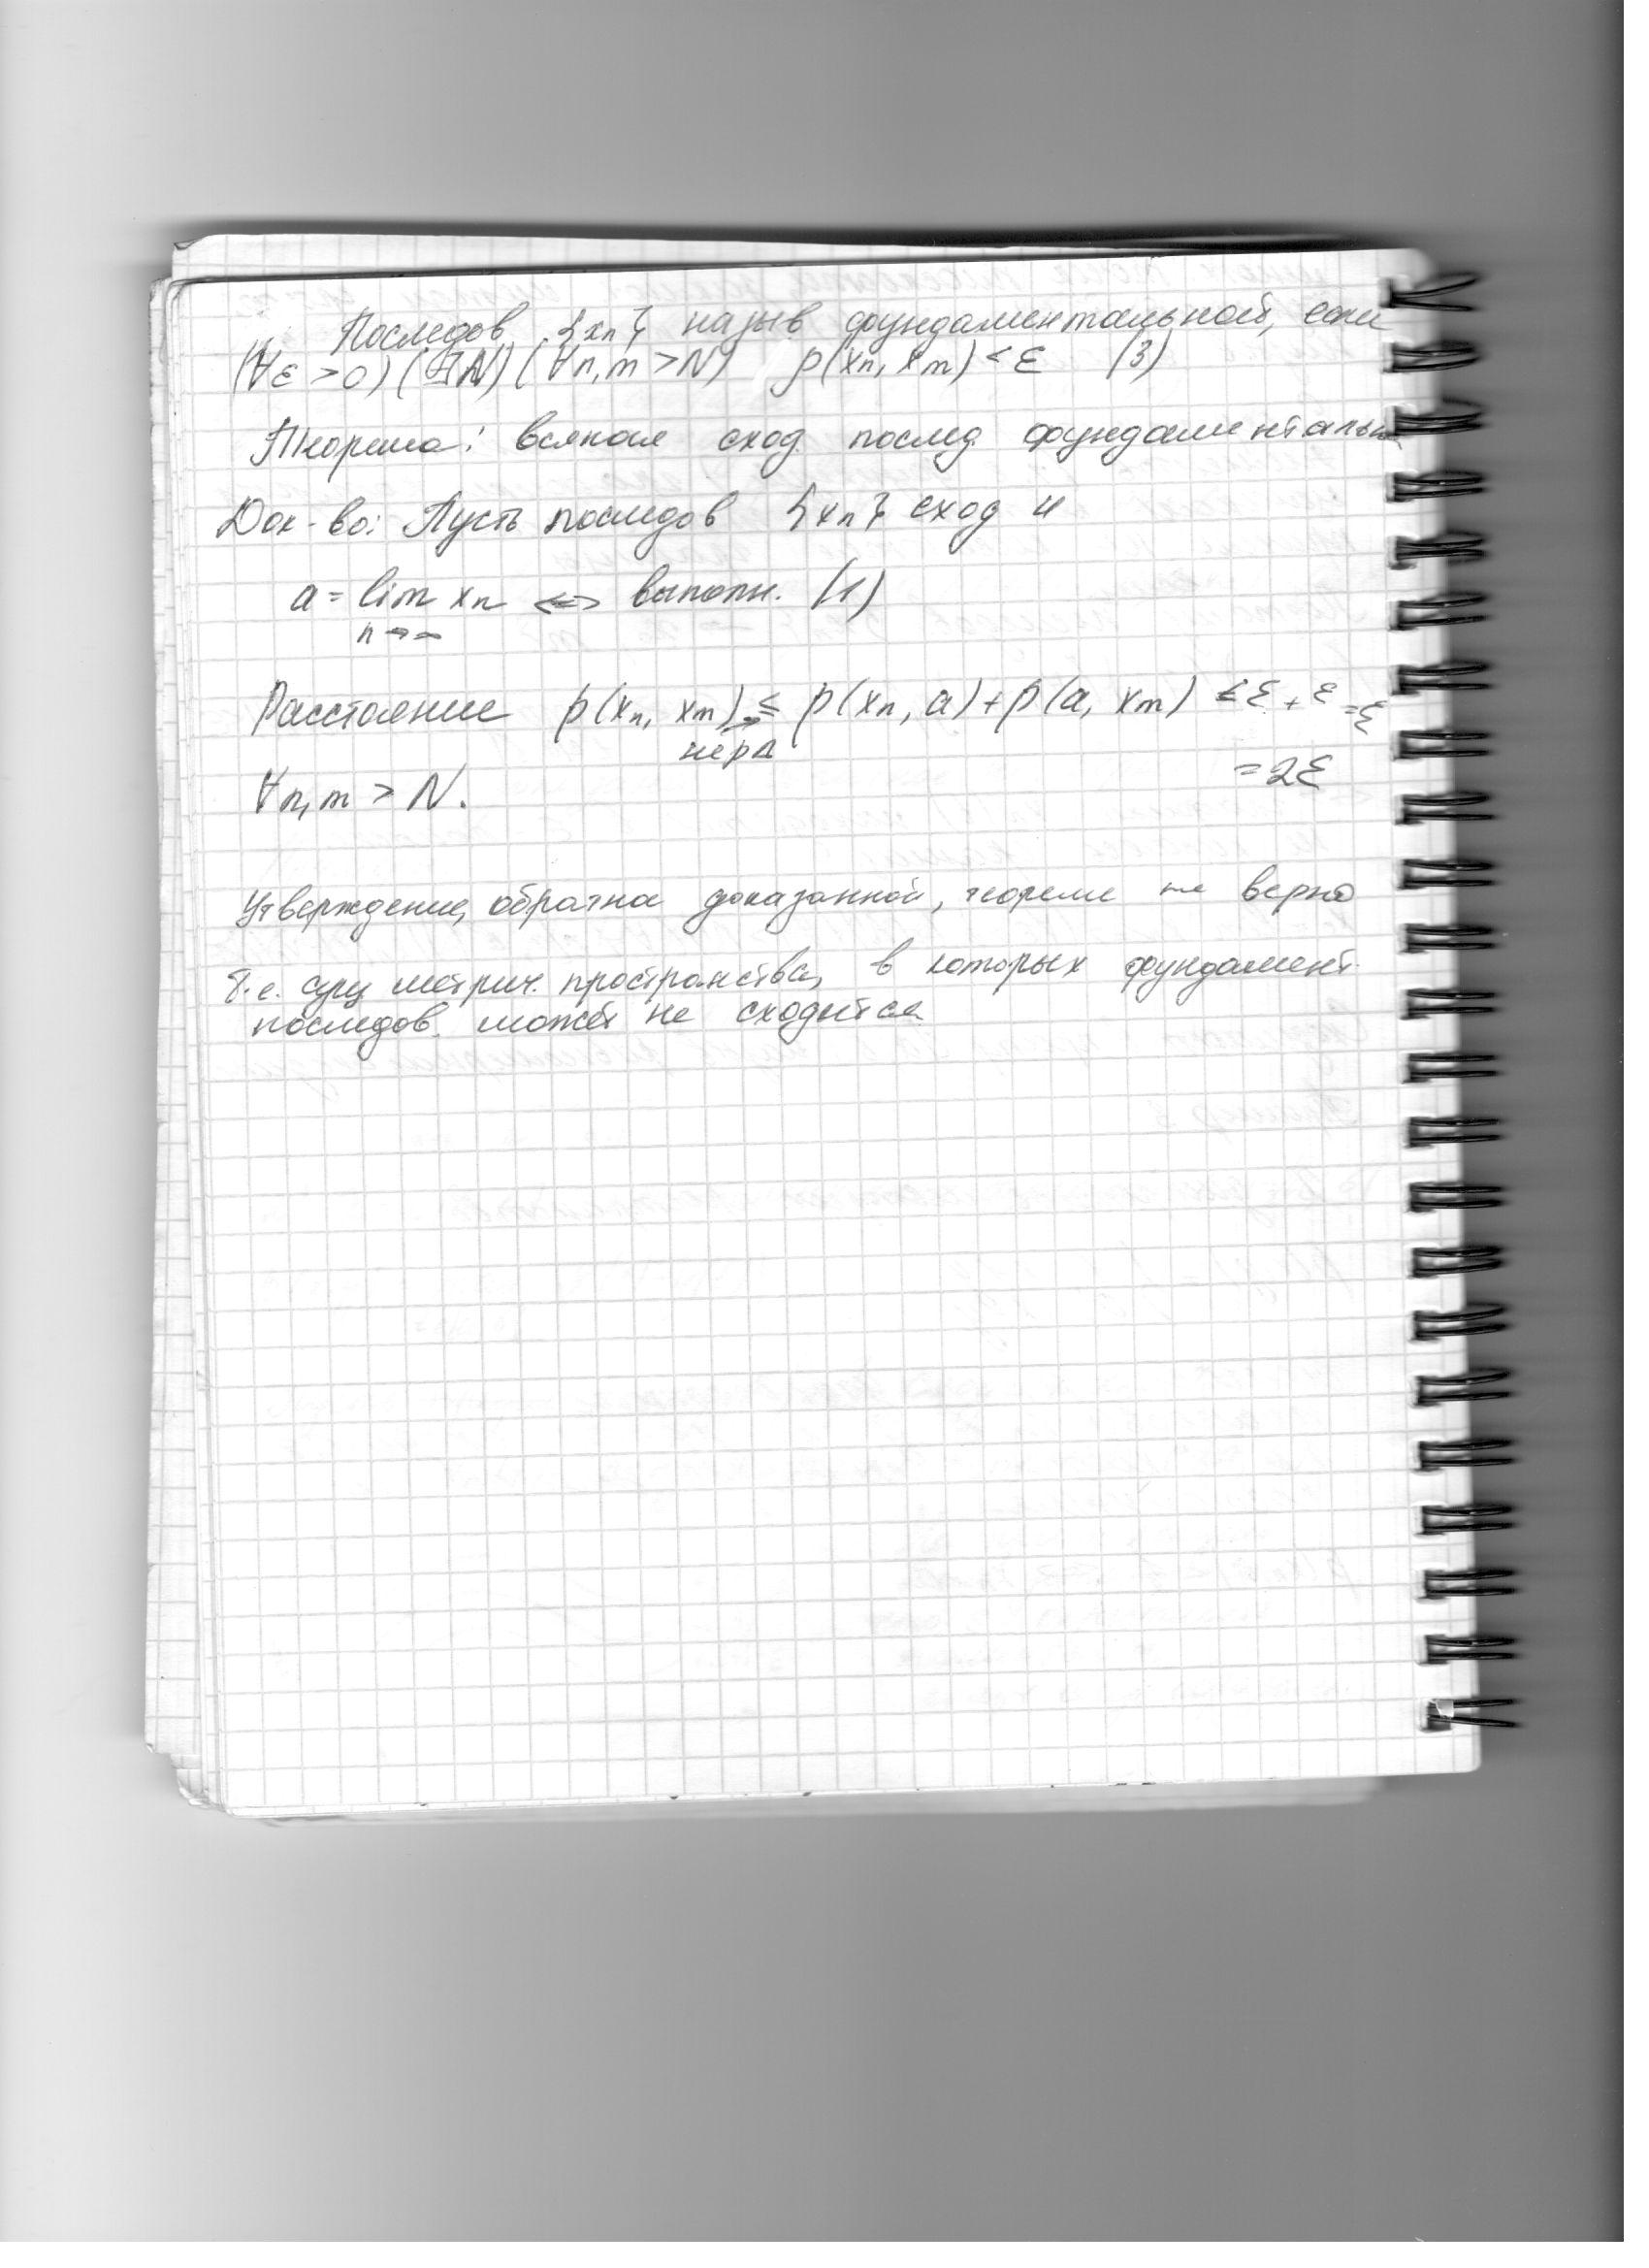 Последов {xn} назыв фундаментальной, если
(∀ε > 0) (∃N) (∀n,m > N) ρ(xn, xm) < ε (3)
Теорема: всякая сход. послед фундаментальн
Док-во: Пусть последов {xn} сход и
a = lim xn <=> выполн. (1)
n→∞
Расстояние ρ(xn, xm) ≤ ρ(xn, a) + ρ(a, xm) ≤ ε + ε = ε
нер Δ
= 2ε
∀n,m > N.
Утверждение, обратна доказанной, теореме не верно
Т.е. сущ метрич. пространства, в которых фундамент.
последов. может не сходится